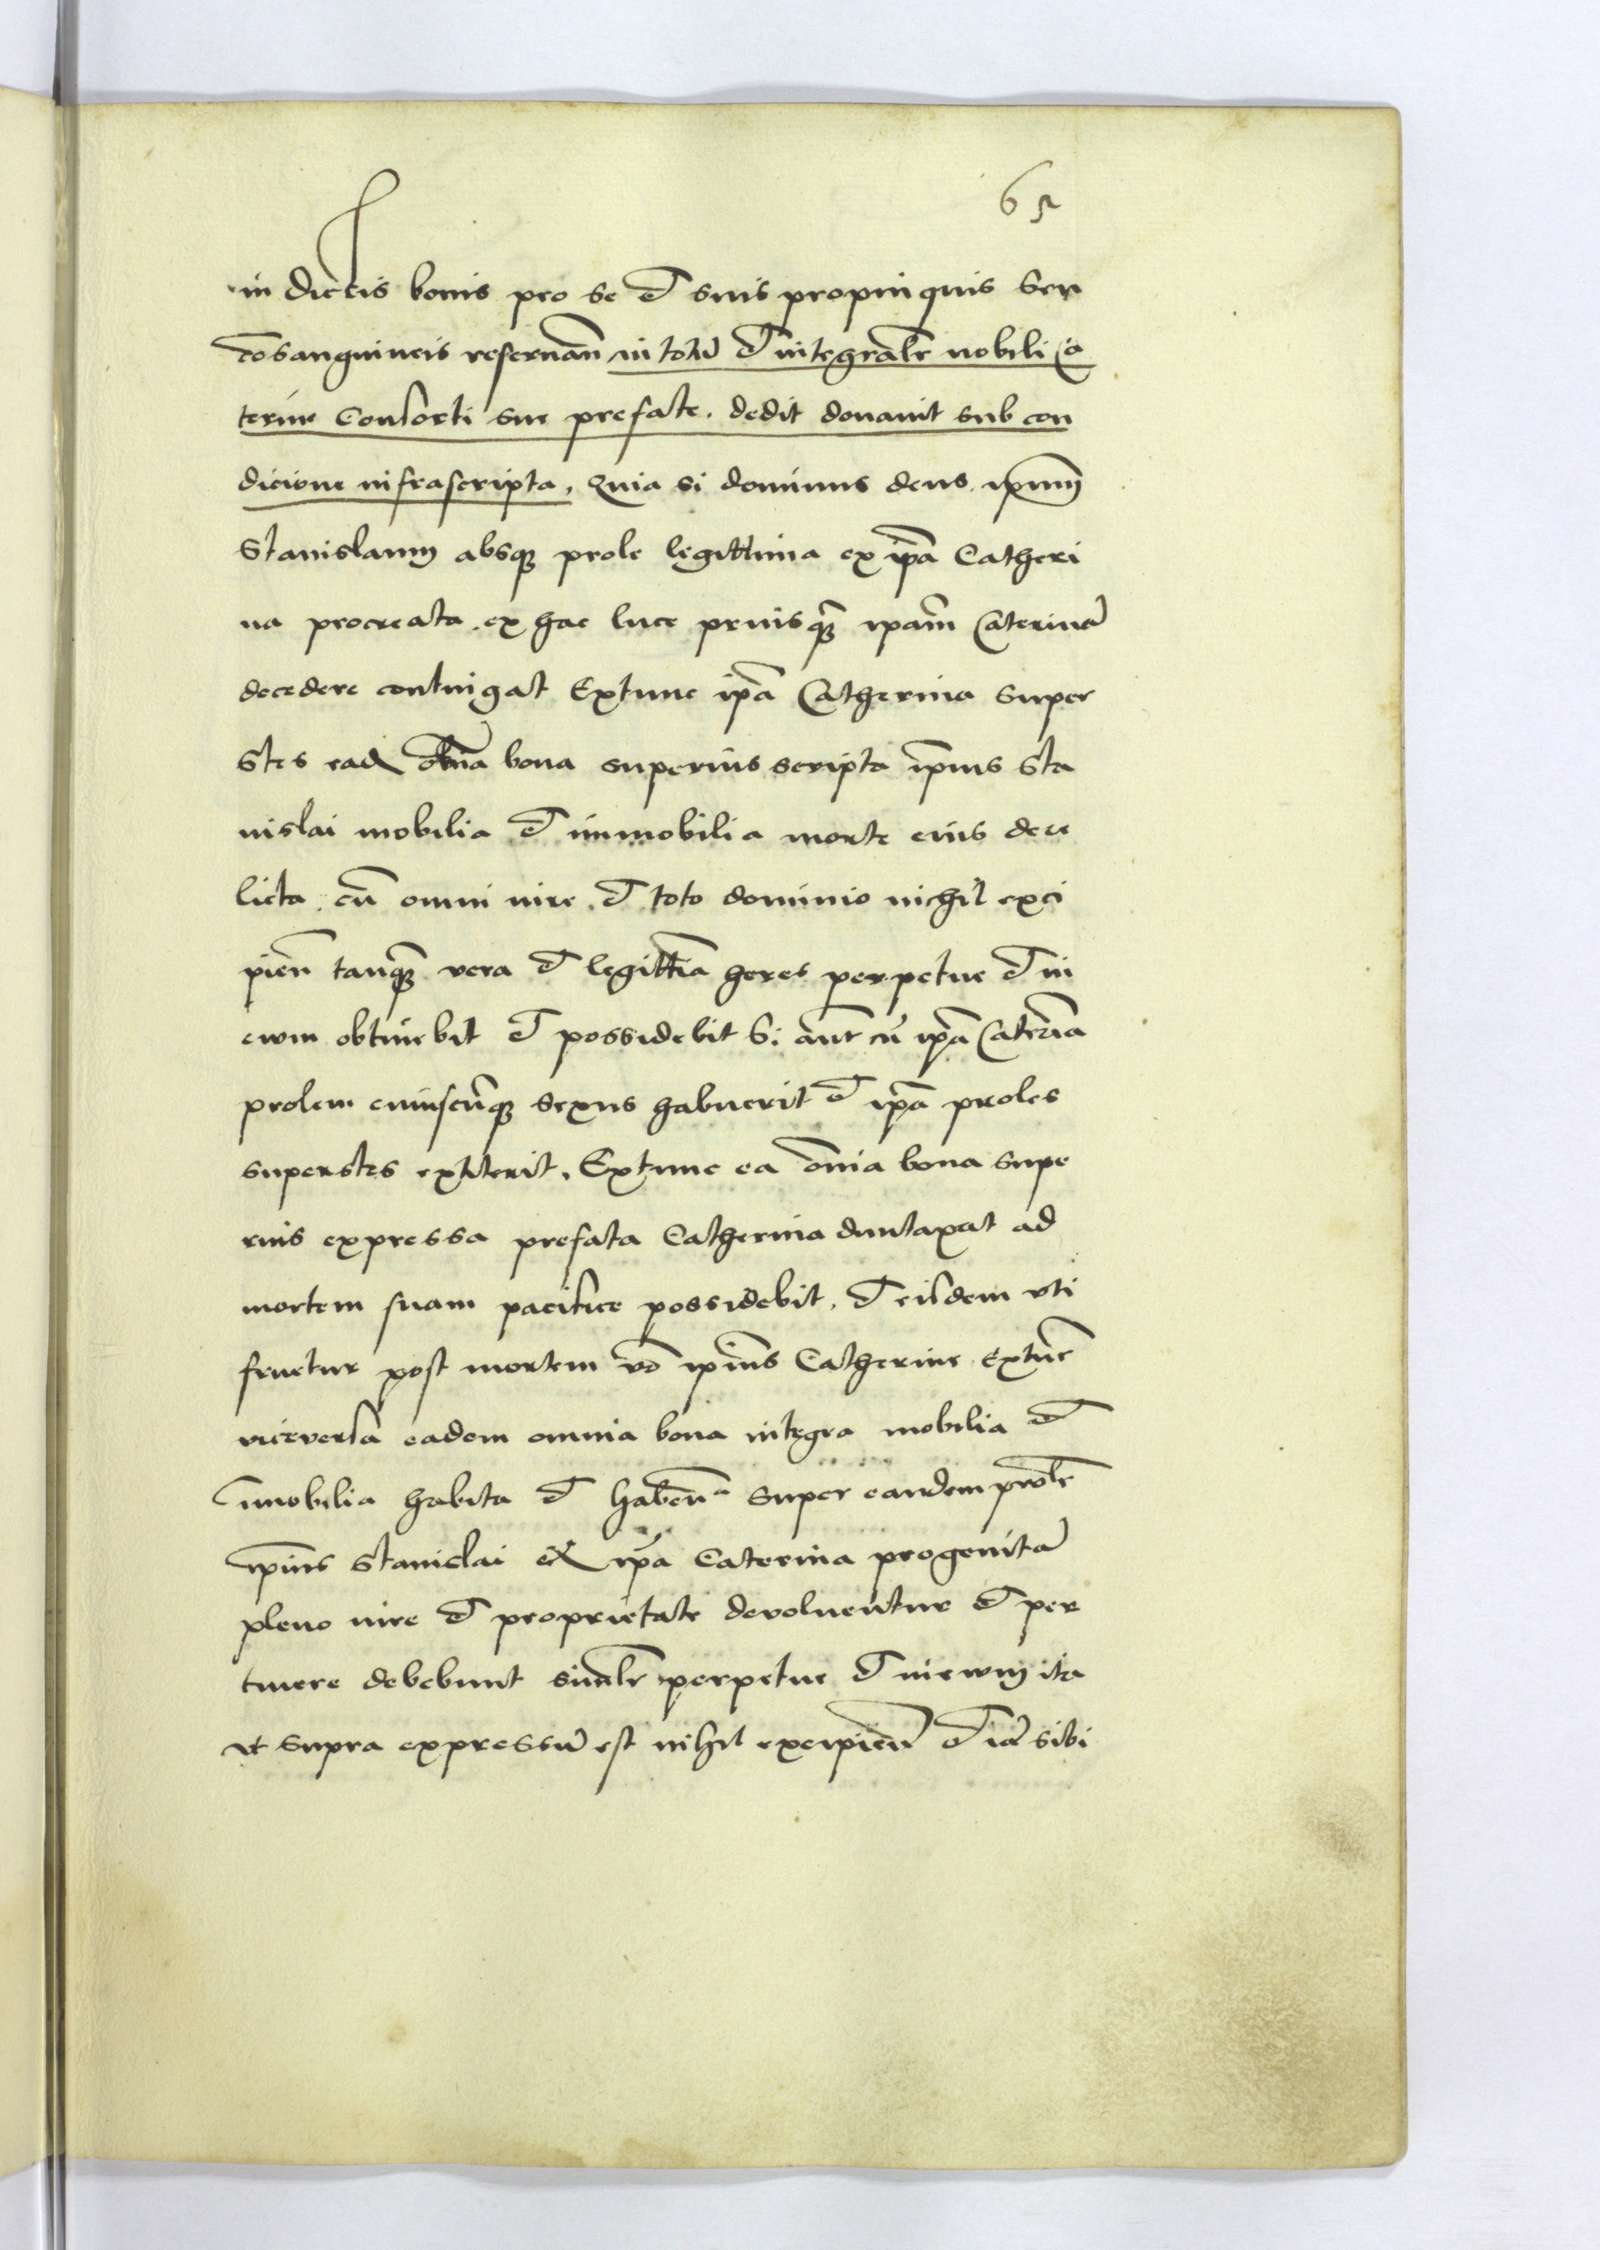 65
in dictis bonis pro se et suis propinquis seu
cōsanguineis reseruan̄ in totū et integralr̄ nobili Ca
terine Consorti sue prefate. dedit donauit sub con
dicione infrascripta, Quia si dominus deus ip̄um
Stanislaum absq̨ prole legittima ex ip̄a Catheri
na procreata ex hac luce priusq̨̄ ip̄am Caterinā
decedere contingat Extunc ip̄a Catherina super
stes ead om̄ia bona superius scripta ip̄ius Sta
nislai mobilia et immobilia morte eius dere
licta cū omni iure et toto dominio nichil exci
pien̄ tanq̨̄ vera et legittīa heres perpetue et in
ewm obtinebit et possidebit Si aut̄ cū ip̄a Cater̄ia
prolem cuiuscūq̨ sexus habuerit et ip̄a proles
superstes extiterit, Extunc ea om̄ia bona supe
rius expressa prefata Catherina duntaxat ad
mortem suam pacifice possidebit, et eisdem vti
fruetur post mortem vō ip̄ius Catherine Extūc
viceversa eadem omnia bona integra mobilia et
īmobilia habita et haben̄a super eandem prolē
ip̄ius Stanislai ex ip̄a Caterina progenitā
pleno iure et proprietate devoluentur et per
tinere debebunt similr̄ perpetue et in ewm ita
vt supra expressū est nihil excipien̄ et iā sibi